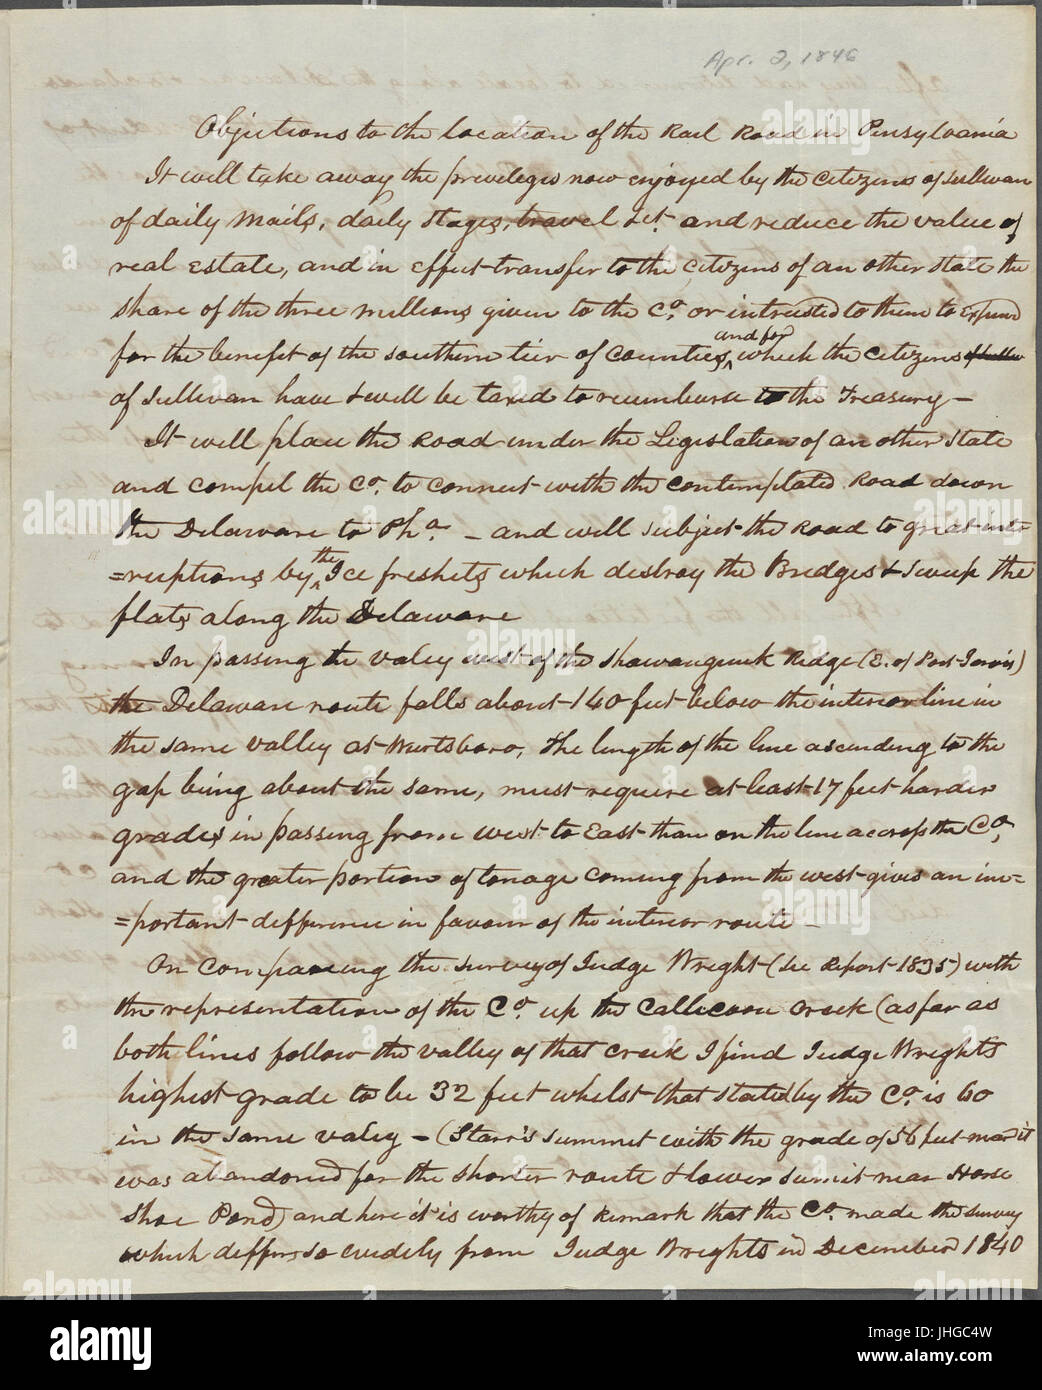 Apr. 2, 1846
Objections to the location of the Rail Road in Pensylvania
It will take away the privileges now enjoyed by the citizens of Sullivan
of daily mails, daily stages, travel &ct. and reduce the value of
real estate, and in effect transfer to the citizens of an other state the
share of the three millions given to the Co. or intrusted to them to expend
for the benefit of the southern tier of counties, and for which the citizens
of Sullivan have & will be taxed to reumburse to the Treasury —
It will place the Road under the Legislation of an other state
and compel the Co. to connect with the contemplated Road down
the Delaware to Pha. — and will subject the Road to great int=
=ruptions by the Ice freshets which destroy the Bridges & sweep the
flats along the Delaware
In passing the valey west of the Shawangunk Ridge (E. of Port Jervis)
the Delaware route falls about 140 feet below the interior line in
the same valley at Wurtsboro, The length of the line ascending to the
gap being about the same, must require at least 17 feet harder
grades in passing from west to East than on the line accross the Co,
and the greater portion of tonage coming from the west gives an im=
=portant difference in favour of the interior route —
On comparing the survey of Judge Wright (See Report 1835) with
the representation of the Co. up the Callicoon Creek (as far as
both lines follow the valley of that creek I find Judge Wrights
highest grade to be 32 feet whilst that stated by the Co. is 60
in the same valey — (Starr's summit with the grade of 56 feet
was abandoned for the shorter route & lower sumit near Horse
Shoe Pond) and here it is worthy of remark that the Co. made the survey
which differs so widely from Judge Wrights in December 1840
alamy
Image ID: JHGC4W
www.alamy.com